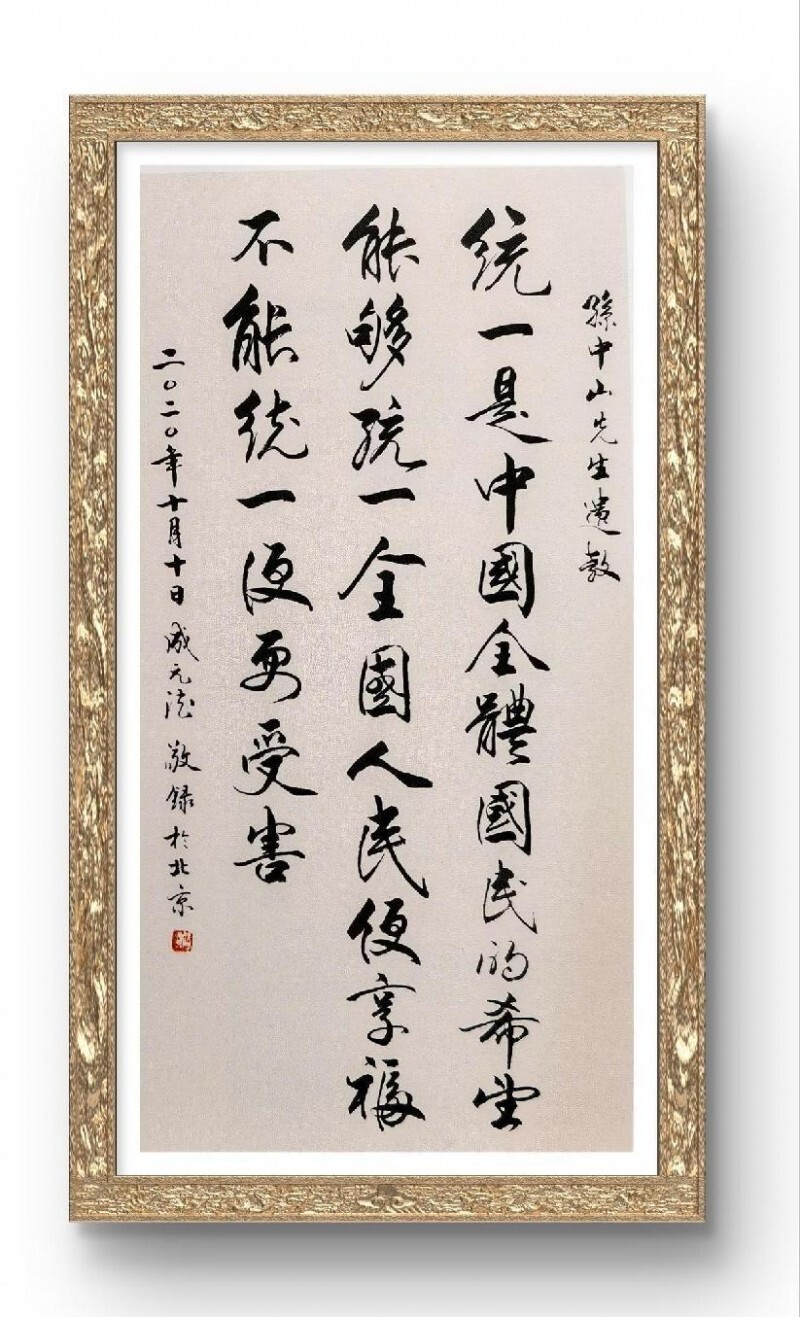 孫中山先生遺教
統一是中國全體國民的希望
能够統一全國人民便享福
不能統一便更受害
二〇二〇年十月十日 成元浩 敬録於北京